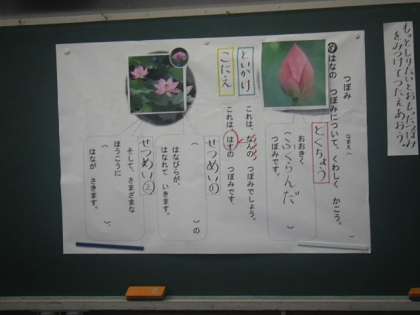 もっとしりたいとおもったつぼみ
をみつけてつたえあおう。
つぼみ
なまえ(
)
❷はなの つぼみについて、くわしく かこう。
とくちょう
おおきく
(ふくらんだ)
つぼみです。
といかけ
これは、なんの つぼみでしょう。
こたえ
これは、はすの つぼみです。
せつめい①
(
)の
はなびらが、
はなれて いきます。
せつめい②
そして、さまざまな
ほうこうに
(
)、
はなが さきます。